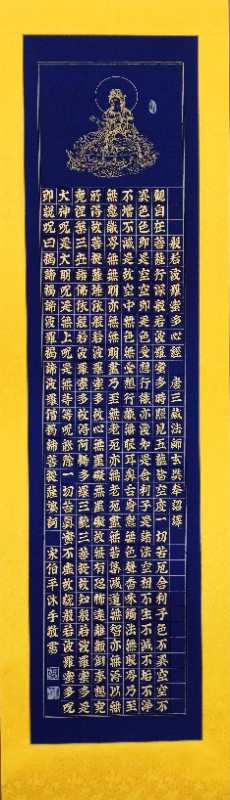 般若波羅蜜多心經 唐三藏法師玄奘奉詔譯
觀自在菩薩行深般若波羅蜜多時照見五蘊皆空度一切苦厄舍利子色不異空空不
異色色即是空空即是色受想行識亦復如是舍利子是諸法空相不生不滅不垢不淨
不增不減是故空中無色無受想行識無眼耳鼻舌身意無色聲香味觸法無眼界乃至
無意識界無無明亦無無明盡乃至無老死亦無老死盡無苦集滅道無智亦無得以無
所得故菩提薩埵依般若波羅蜜多故心無罣礙無罣礙故無有恐怖遠離顛倒夢想究
竟涅槃三世諸佛依般若波羅蜜多故得阿耨多羅三藐三菩提故知般若波羅蜜多是
大神呪是大明呪是無上呪是無等等呪能除一切苦真實不虛故說般若波羅蜜多呪
即說呪曰揭諦揭諦波羅揭諦波羅僧揭諦菩提薩婆訶 宋伯平沐手敬書